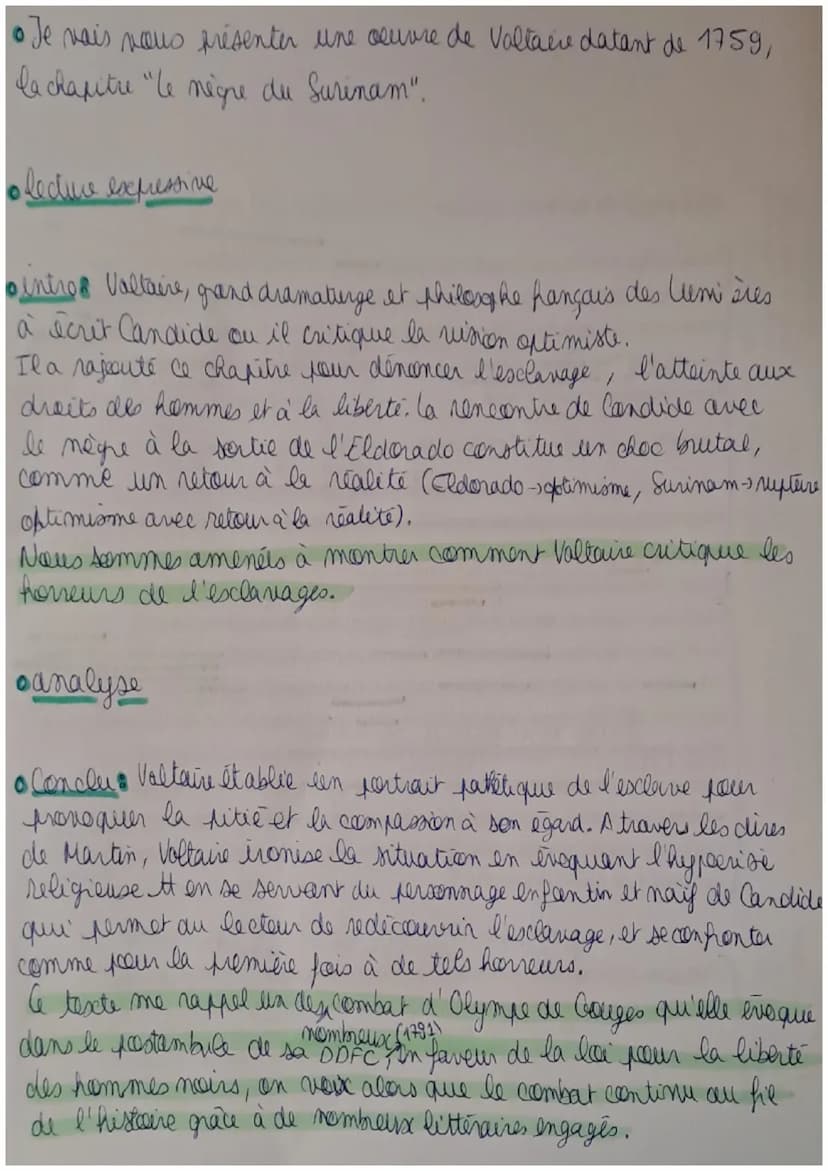 Je vais vous présenter une oeuvre de Voltaire datant de 1759,
la chapitre "le nègre du Surinam".
lecture expressive
intro : Voltaire, grand dramaturge et philosophe français des lumières
à écrit Candide ou il critique la vision optimiste.
Il a rajouté ce chapitre pour dénoncer l'esclavage, l'atteinte aux
droits des hommes et à la liberté. La rencontre de Candide avec
le nègre à la sortie de l'Eldorado constitue un choc brutal,
comme un retour à la réalité (Eldorado → optimisme, Surinam → rupture
optimisme avec retour à la réalité).
Nous sommes amenés à montrer comment Voltaire critique les
horreurs de l'esclavages.
analyse
Conclu : Voltaire établie un portrait pathétique de l'esclave pour
provoquer la pitié et la compassion à son égard. A travers les dires
de Martin, Voltaire ironise la situation en évoquant l'hypocrisie
religieuse et en se servant du personnage enfantin et naïf de Candide
qui permet au lecteur de redécouvrir l'esclavage, et se confronter
comme pour la première fois à de tels horreurs.
Ce texte me rappel un des nombreux combat d'Olympe de Gouges qu'elle évoque
dans le postambule de sa DDFC (1791), en faveur de la loi pour la liberté
des hommes noirs, on voix alors que le combat continu au fil
de l'histoire grâce à de nombreux littéraires engagés.